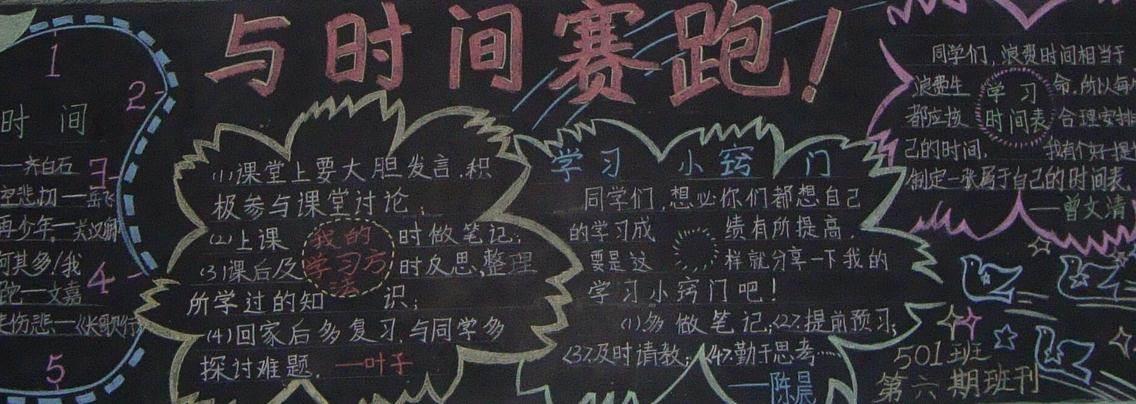 与时间赛跑!
1
2
3
4
5
时间
——齐白石
空悲切——岳飞
再少年——关汉卿
何其多!我
跑——文嘉
老大徒伤悲——《长歌行》
(1)课堂上要大胆发言,积
极参与课堂讨论;
(2)上课时做笔记;
(3)课后及时反思,整理
所学过的知识;
(4)回家后多复习,与同学多
探讨难题.——叶子
我的
学习方
法
学习小窍门
同学们,想必你们都想自己
的学习成绩有所提高,
要是这样就分享一下我的
学习小窍门吧!
(1)多做笔记;(2)提前预习;
(3)及时请教;(4)勤于思考……
——陈晨
同学们,浪费时间相当于
浪费生命,所以每
都应该合理安排
己的时间.我有个好提
制定一张属于自己的时间表.
——曾文清
学习
时间表
501班
第六期班刊